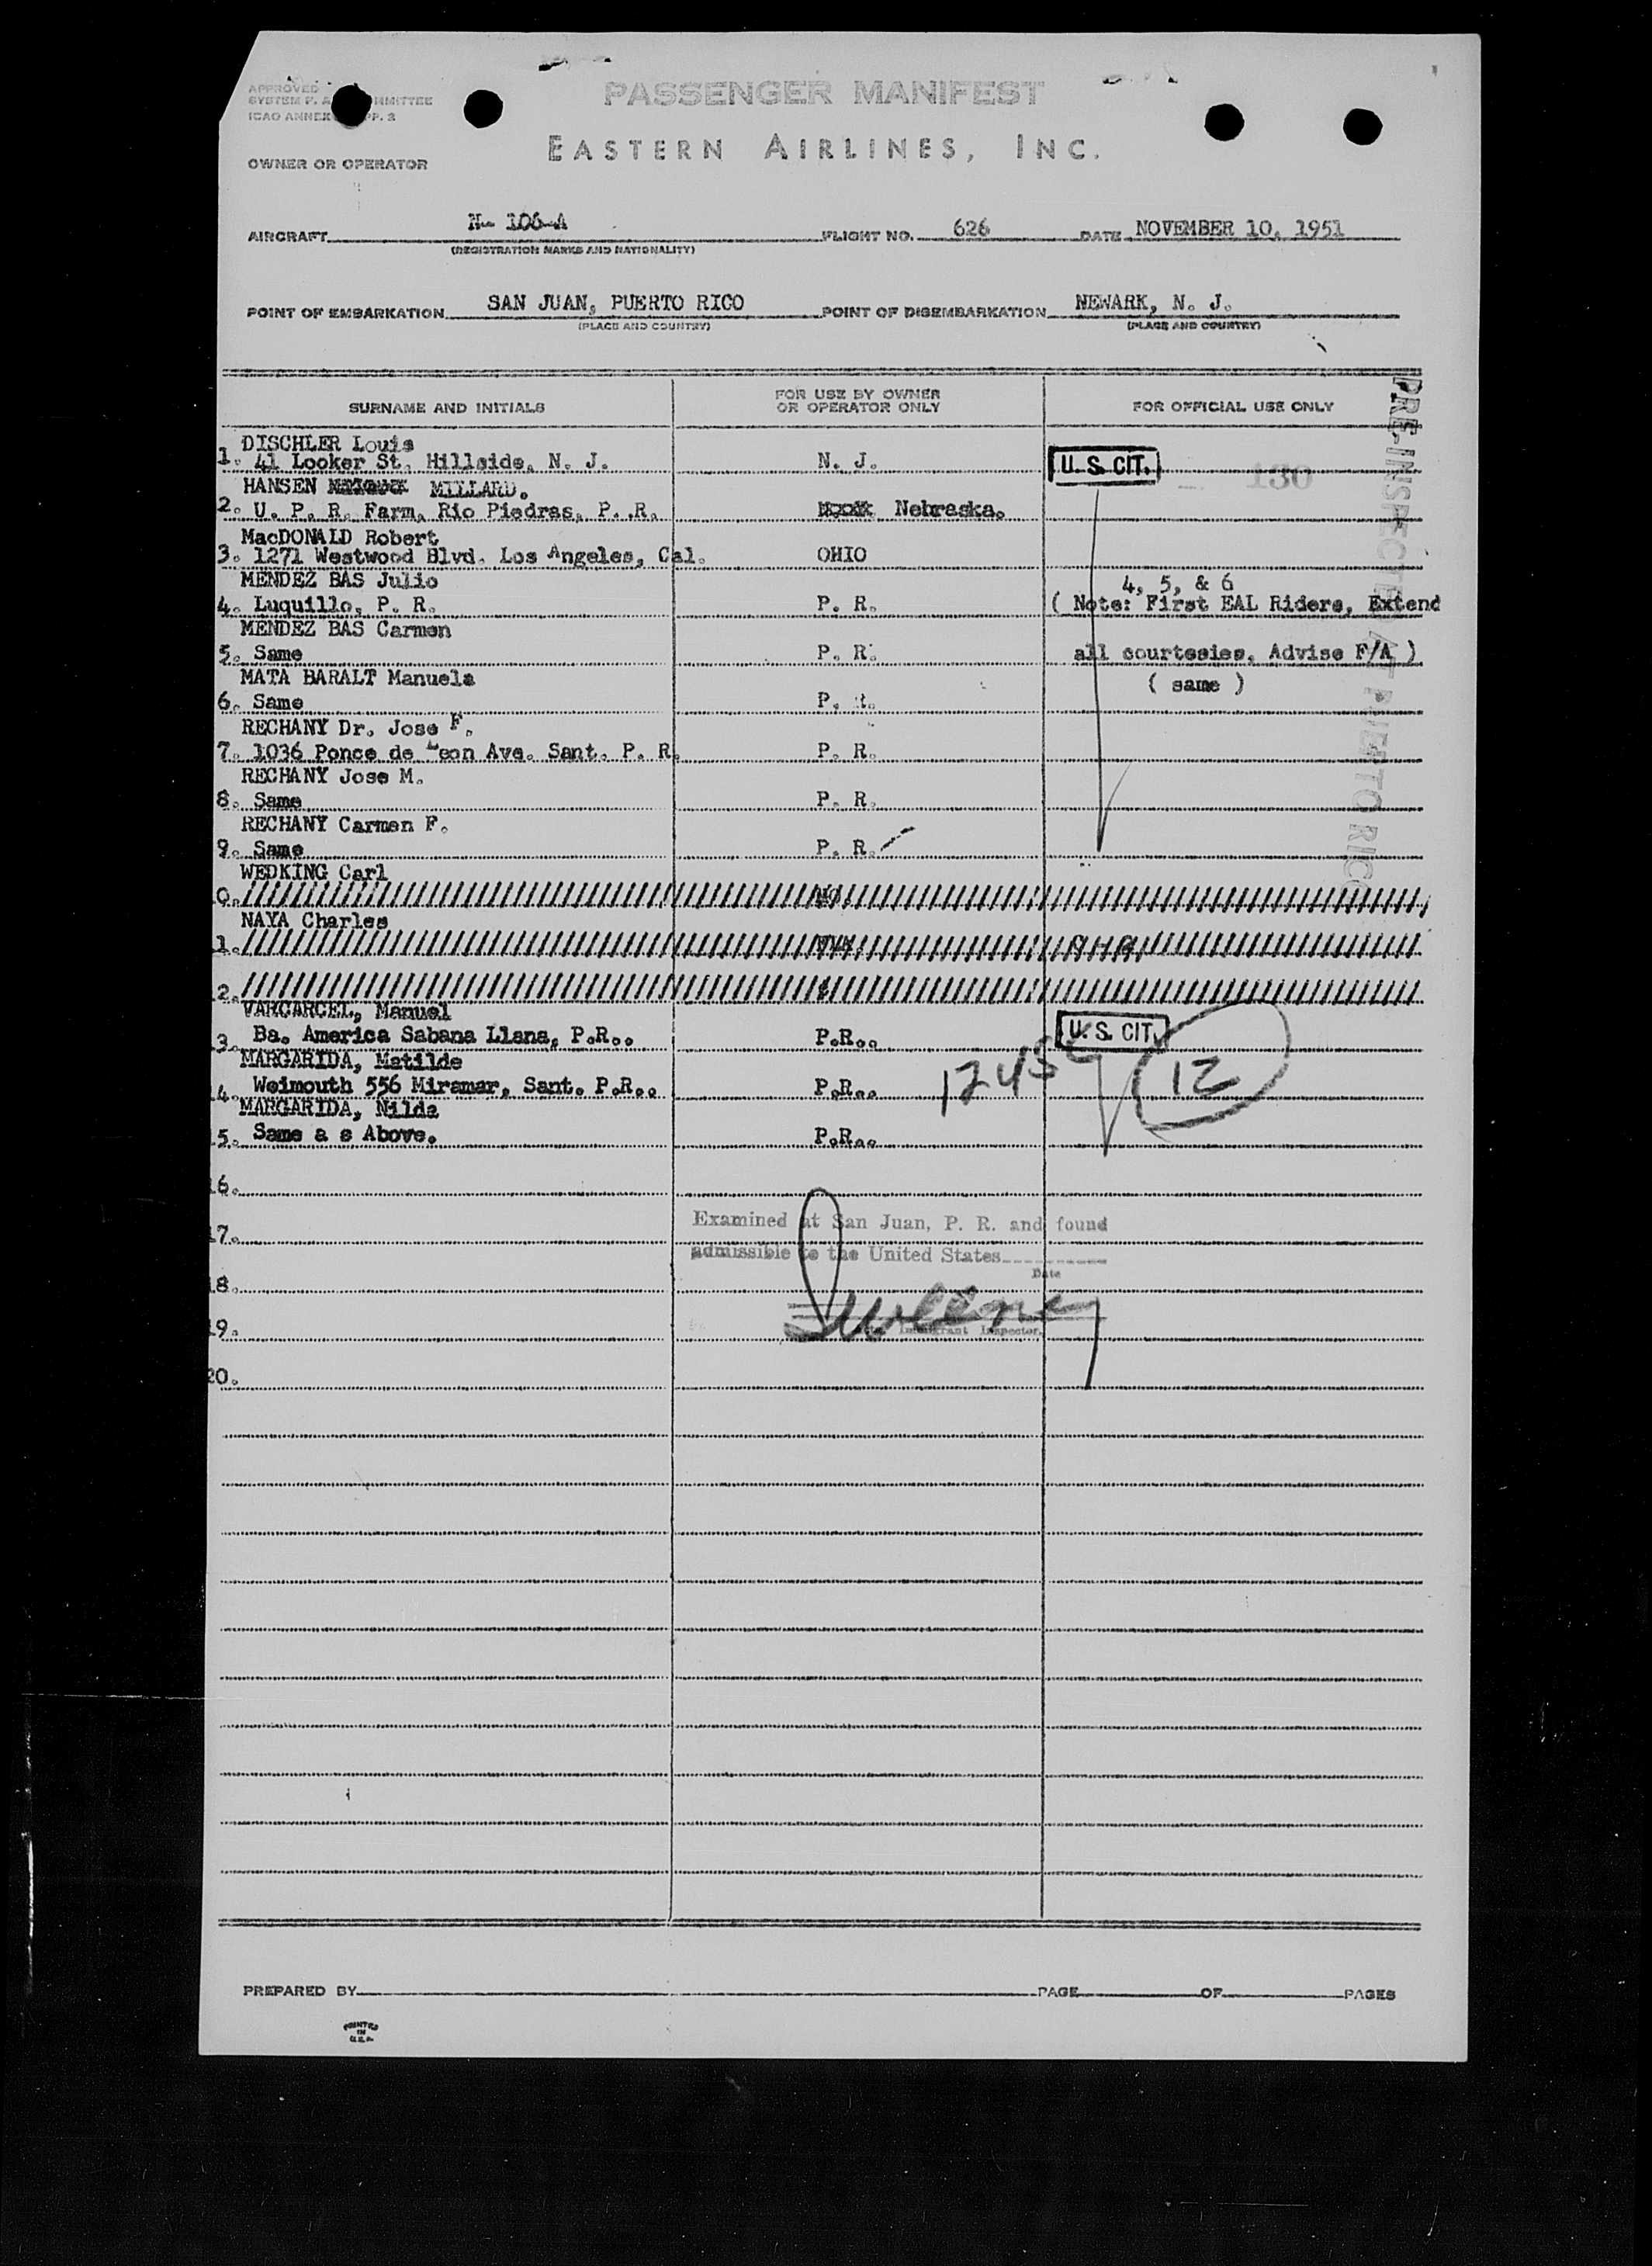 APPROVED
SYSTEM F. A. COMMITTEE
ICAO ANNEX APP. 2
PASSENGER MANIFEST
EASTERN AIRLINES, INC.
OWNER OR OPERATOR
AIRCRAFT N- 106-A FLIGHT NO. 626 DATE NOVEMBER 10, 1951
(REGISTRATION MARKS AND NATIONALITY)
POINT OF EMBARKATION SAN JUAN, PUERTO RICO POINT OF DISEMBARKATION NEWARK, N. J.
(PLACE AND COUNTRY) (PLACE AND COUNTRY)
SURNAME AND INITIALS FOR USE BY OWNER OR OPERATOR ONLY FOR OFFICIAL USE ONLY
PRE-INSPECTED AT PUERTO RICO
DISCHLER Louis
1. 41 Looker St. Hillside, N. J. N. J. U. S. CIT. 130
HANSEN MILLARD.
2. U. P. R. Farm, Rio Piedras, P. R. Nebraska.
MacDONALD Robert
3. 1271 Westwood Blvd. Los Angeles, Cal. OHIO
MENDEZ BAS Julio 4, 5, & 6
4. Luquillo, P. R. P. R. ( Note: First EAL Riders, Extend
MENDEZ BAS Carmen
5. Same P. R. all courtesies, Advise F/A )
MATA BARALT Manuela ( same )
6. Same P. R.
RECHANY Dr. Jose F.
7. 1036 Ponce de Leon Ave. Sant. P. R. P. R.
RECHANY Jose M.
8. Same P. R.
RECHANY Carmen F.
9. Same P. R.
WEDKING Carl
0. //////////
NAYA Charles
1. //////////
2. //////////
VARCARCEL, Manuel
3. Ba. America Sabana Llana, P.R.. P.R.. U. S. CIT.
MARGARIDA, Matilde
4. Weimouth 556 Miramar, Sant. P.R.. P.R.. 12
MARGARIDA, Nilda
5. Same a s Above. P.R..
16.
17. Examined at San Juan, P. R. and found
admissible to the United States
Date
18.
Sweeney
19. Immigrant Inspector
20.
PREPARED BY PAGE OF PAGES
PRINTED
IN
U.S.A.